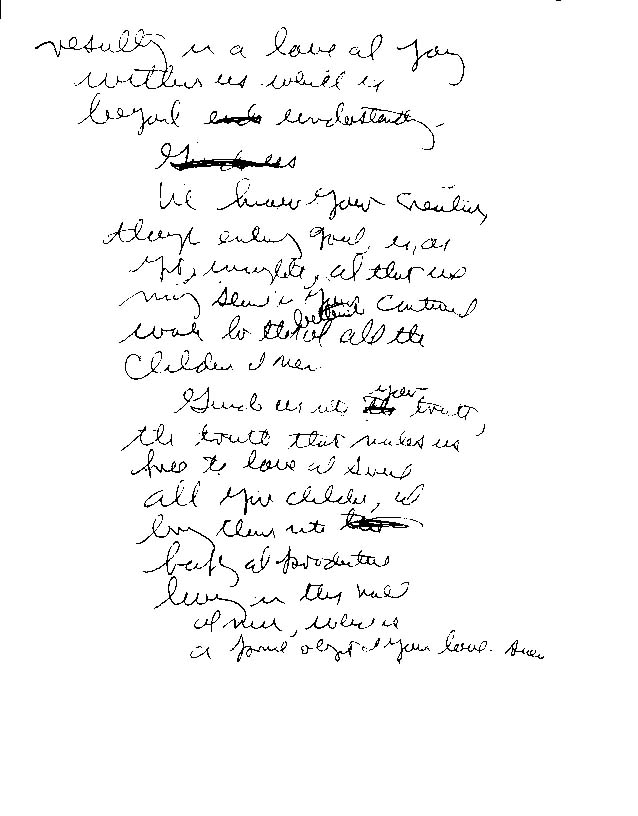 resulting in a love and joy
within us which is
beyond understanding.
We know your creation,
always ending good, is, as
yet, incomplete, and that we
may serve in your continued
work for the of all the
children of men.
Guide us into your truth,
the truth that makes us
free to love and serve
all your children, and
bring them into
happy and productive
living in this world
of men, where is
a prime object of your love. Amen